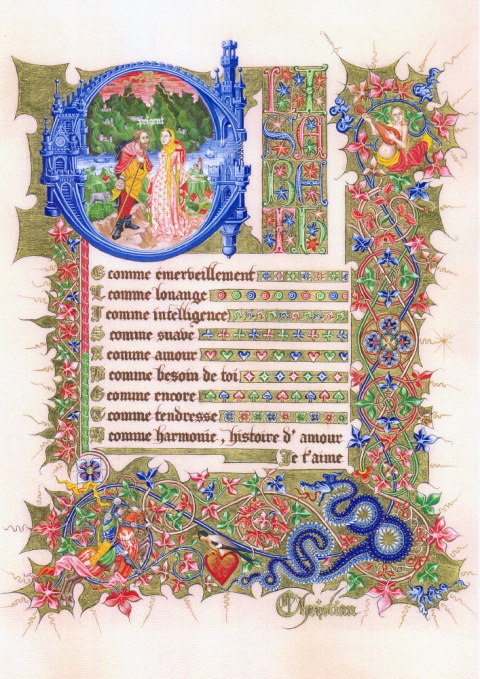 E
LI
SA
BE
TH
E comme émerveillement
L comme louange
I comme intelligence
S comme suave
A comme amour
B comme besoin de toi
E comme encore
T comme tendresse
H comme harmonie, histoire d'amour
Je t'aime